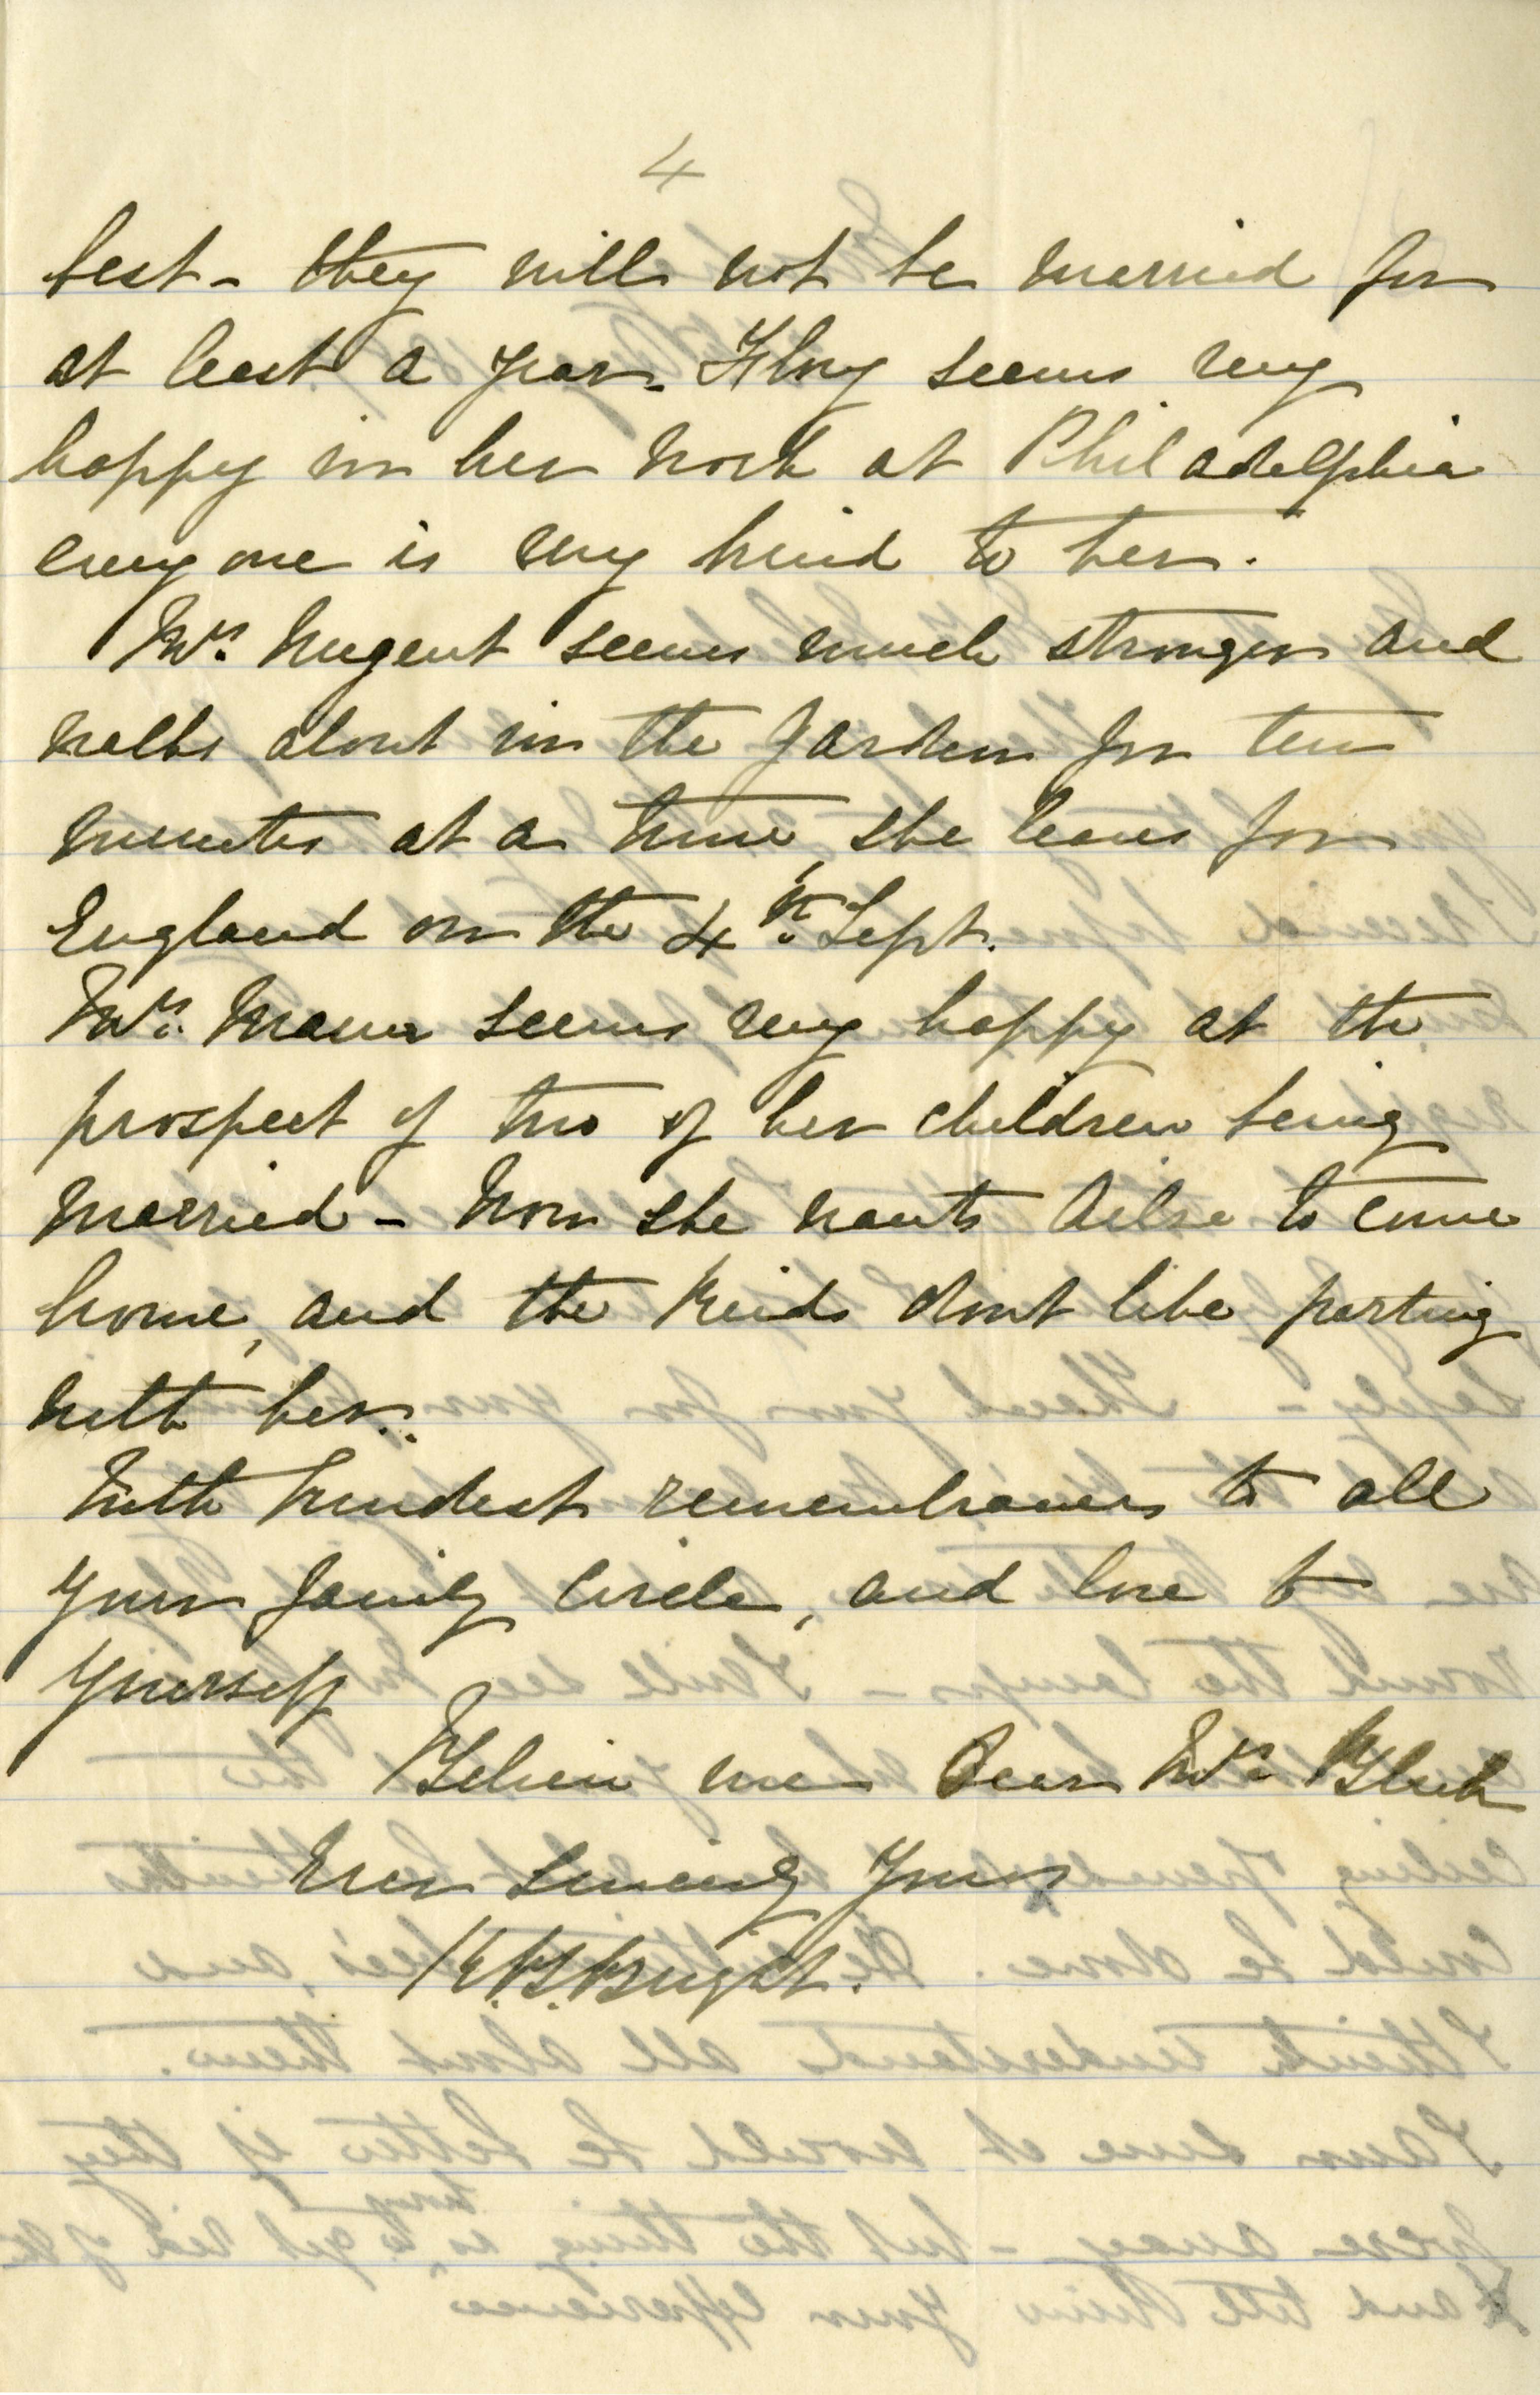 4
best - they will not be married for
at least a year. Flory seems very
happy in her work at Philadelphia
everyone is very kind to her.
Mrs. Nugent seems much stronger and
walks about in the garden for ten
minutes at a time, she leaves for
England on the 4th. Sept.
Mrs. Mann seems very happy at the
prospect of two of her children being
married - Now she wants Ailsa to come
home, and the Reids dont like parting
with her.
With kindest remembrances to all
your family circle, and love to
yourself
Believe me Dear Mrs Black
Ever sincerely yours
Bright.